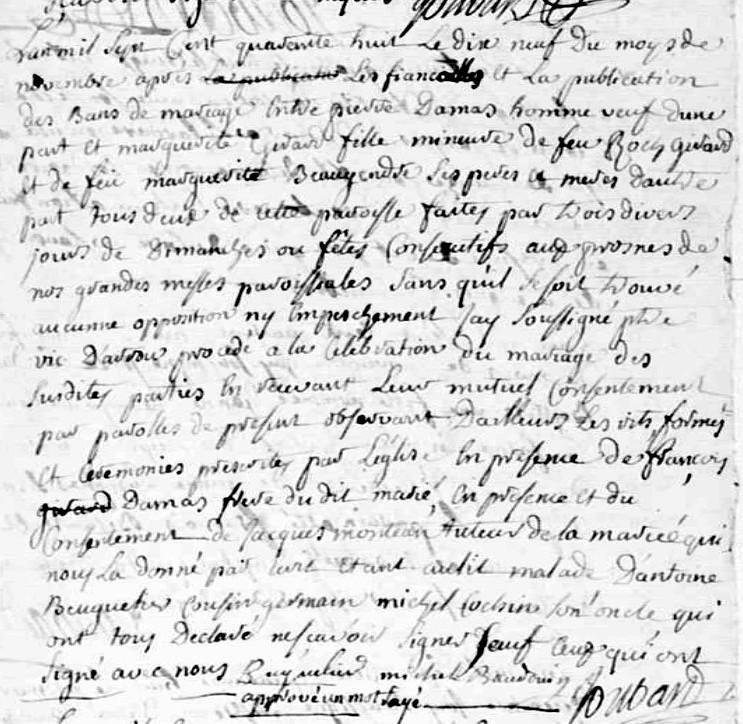 L'an mil sept Cent quarante huit Le dix neuf Du moys de
novembre après la publication Les fiancailles et La publication
des Bans de mariage Entre pierre Damas homme veuf d'une
part Et marguerite Girard fille mineure de feu Roch Girard
Et de feue marguerite Beaugendre ses peres et meres Dautre
part tous deux de cette paroisse faites par trois divers
jours de Dimanches ou fêtes Consecutifs aux prosnes de
nos grandes messes paroissiales sans qu'il se soit trouvé
aucunne opposition ny Empeschement Jay soussigné ptre
vic procedé a la Celebration du mariage des
susdites parties En recevant Leur mutuel Consentement
par parolles de present observant Dailleurs Les rits formes
Et Ceremonies prescrites par L'eglise En presence De François
girard Damas frere du dit marié, En presence et du
Consentement de Jacques tuteur de la mariée qui
nous La donné par Ecrit Etant au lit malade D'antoine
Cousin germain michel son oncle qui
ont tous Declaré ne scavoir signer sauf Ceux qui ont
signé avec nous michel Baudouin
approuvé un mot rayé